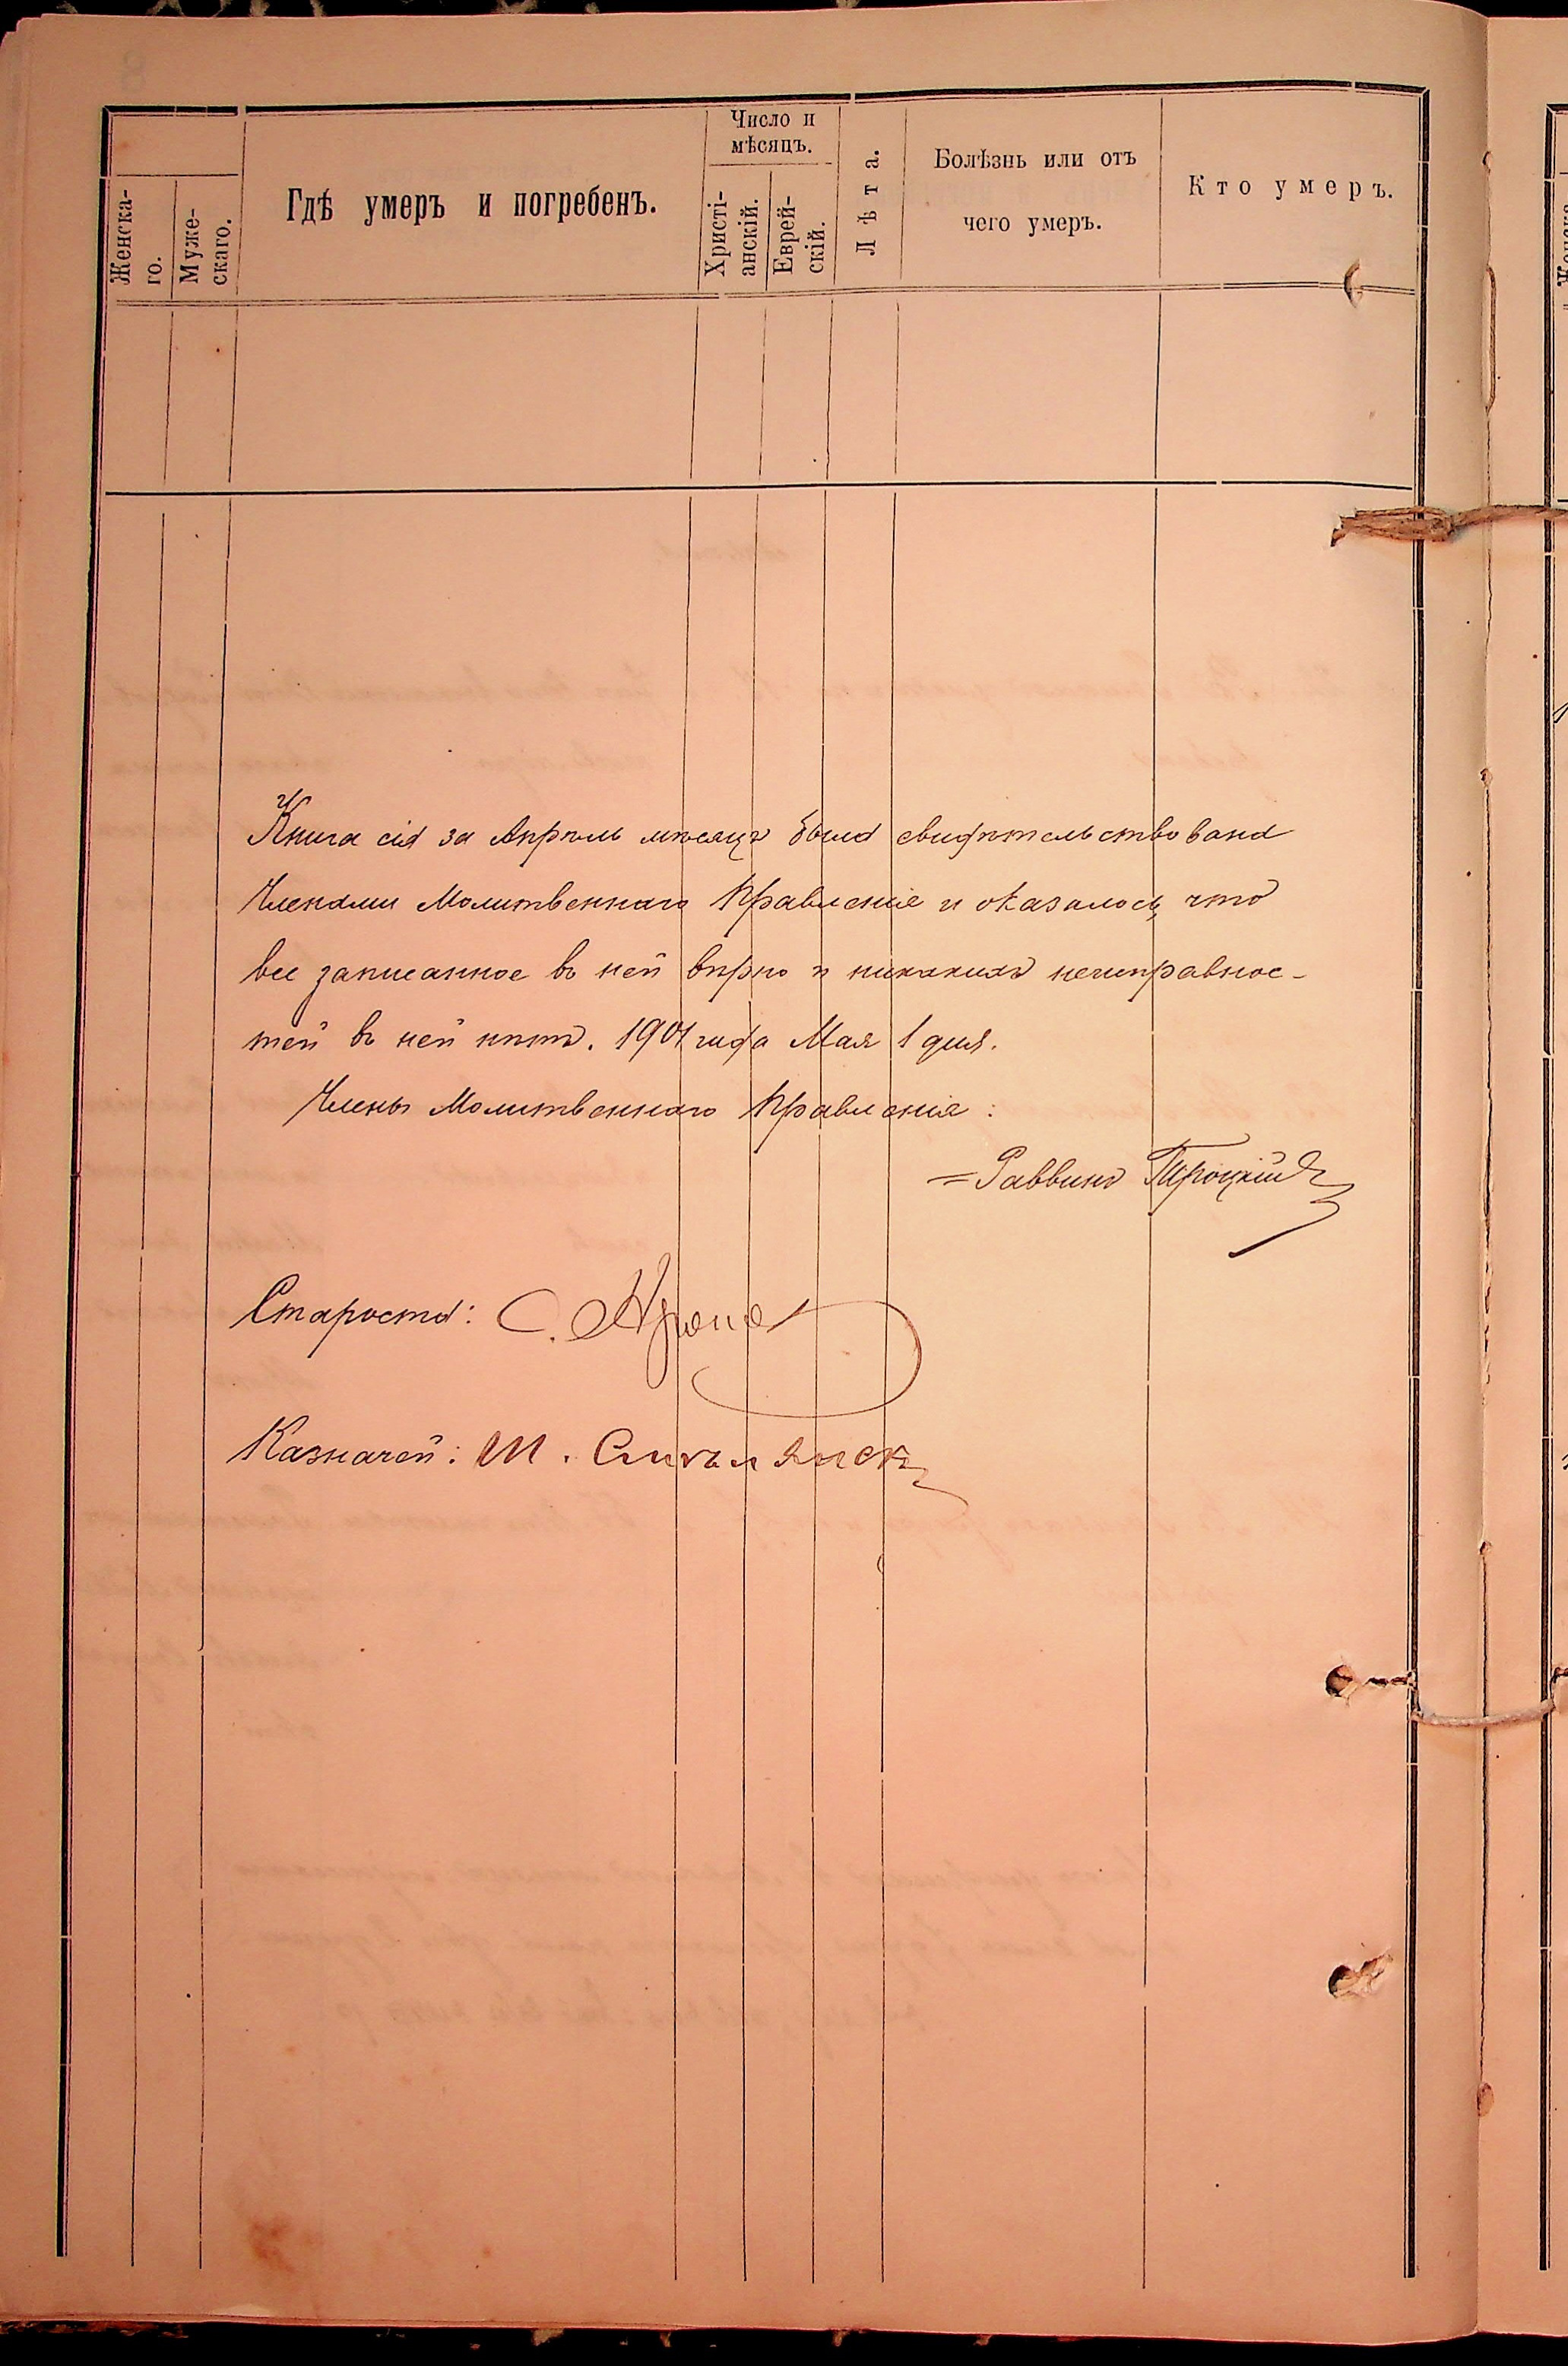 Женска-
го.
Муже-
скаго.
Гдѣ умеръ и погребенъ.
Число и
мѣсяцъ.
Христі-
анскій.
Еврей-
скій.
Лѣта.
Болѣзнь или отъ
чего умеръ.
Кто умеръ.
Книга сія за Апрѣль мѣсяцъ была свидѣтельствована
Членами Молитвеннаго Правленія и оказалось, что
все записанное въ ней вѣрно и никакихъ неисправнос-
тей въ ней нѣтъ. 1901 года Мая 1 дня.
Члены Молитвеннаго Правленія:
=Раввинъ Троцкій
Староста: С.
Казначей: Ш.